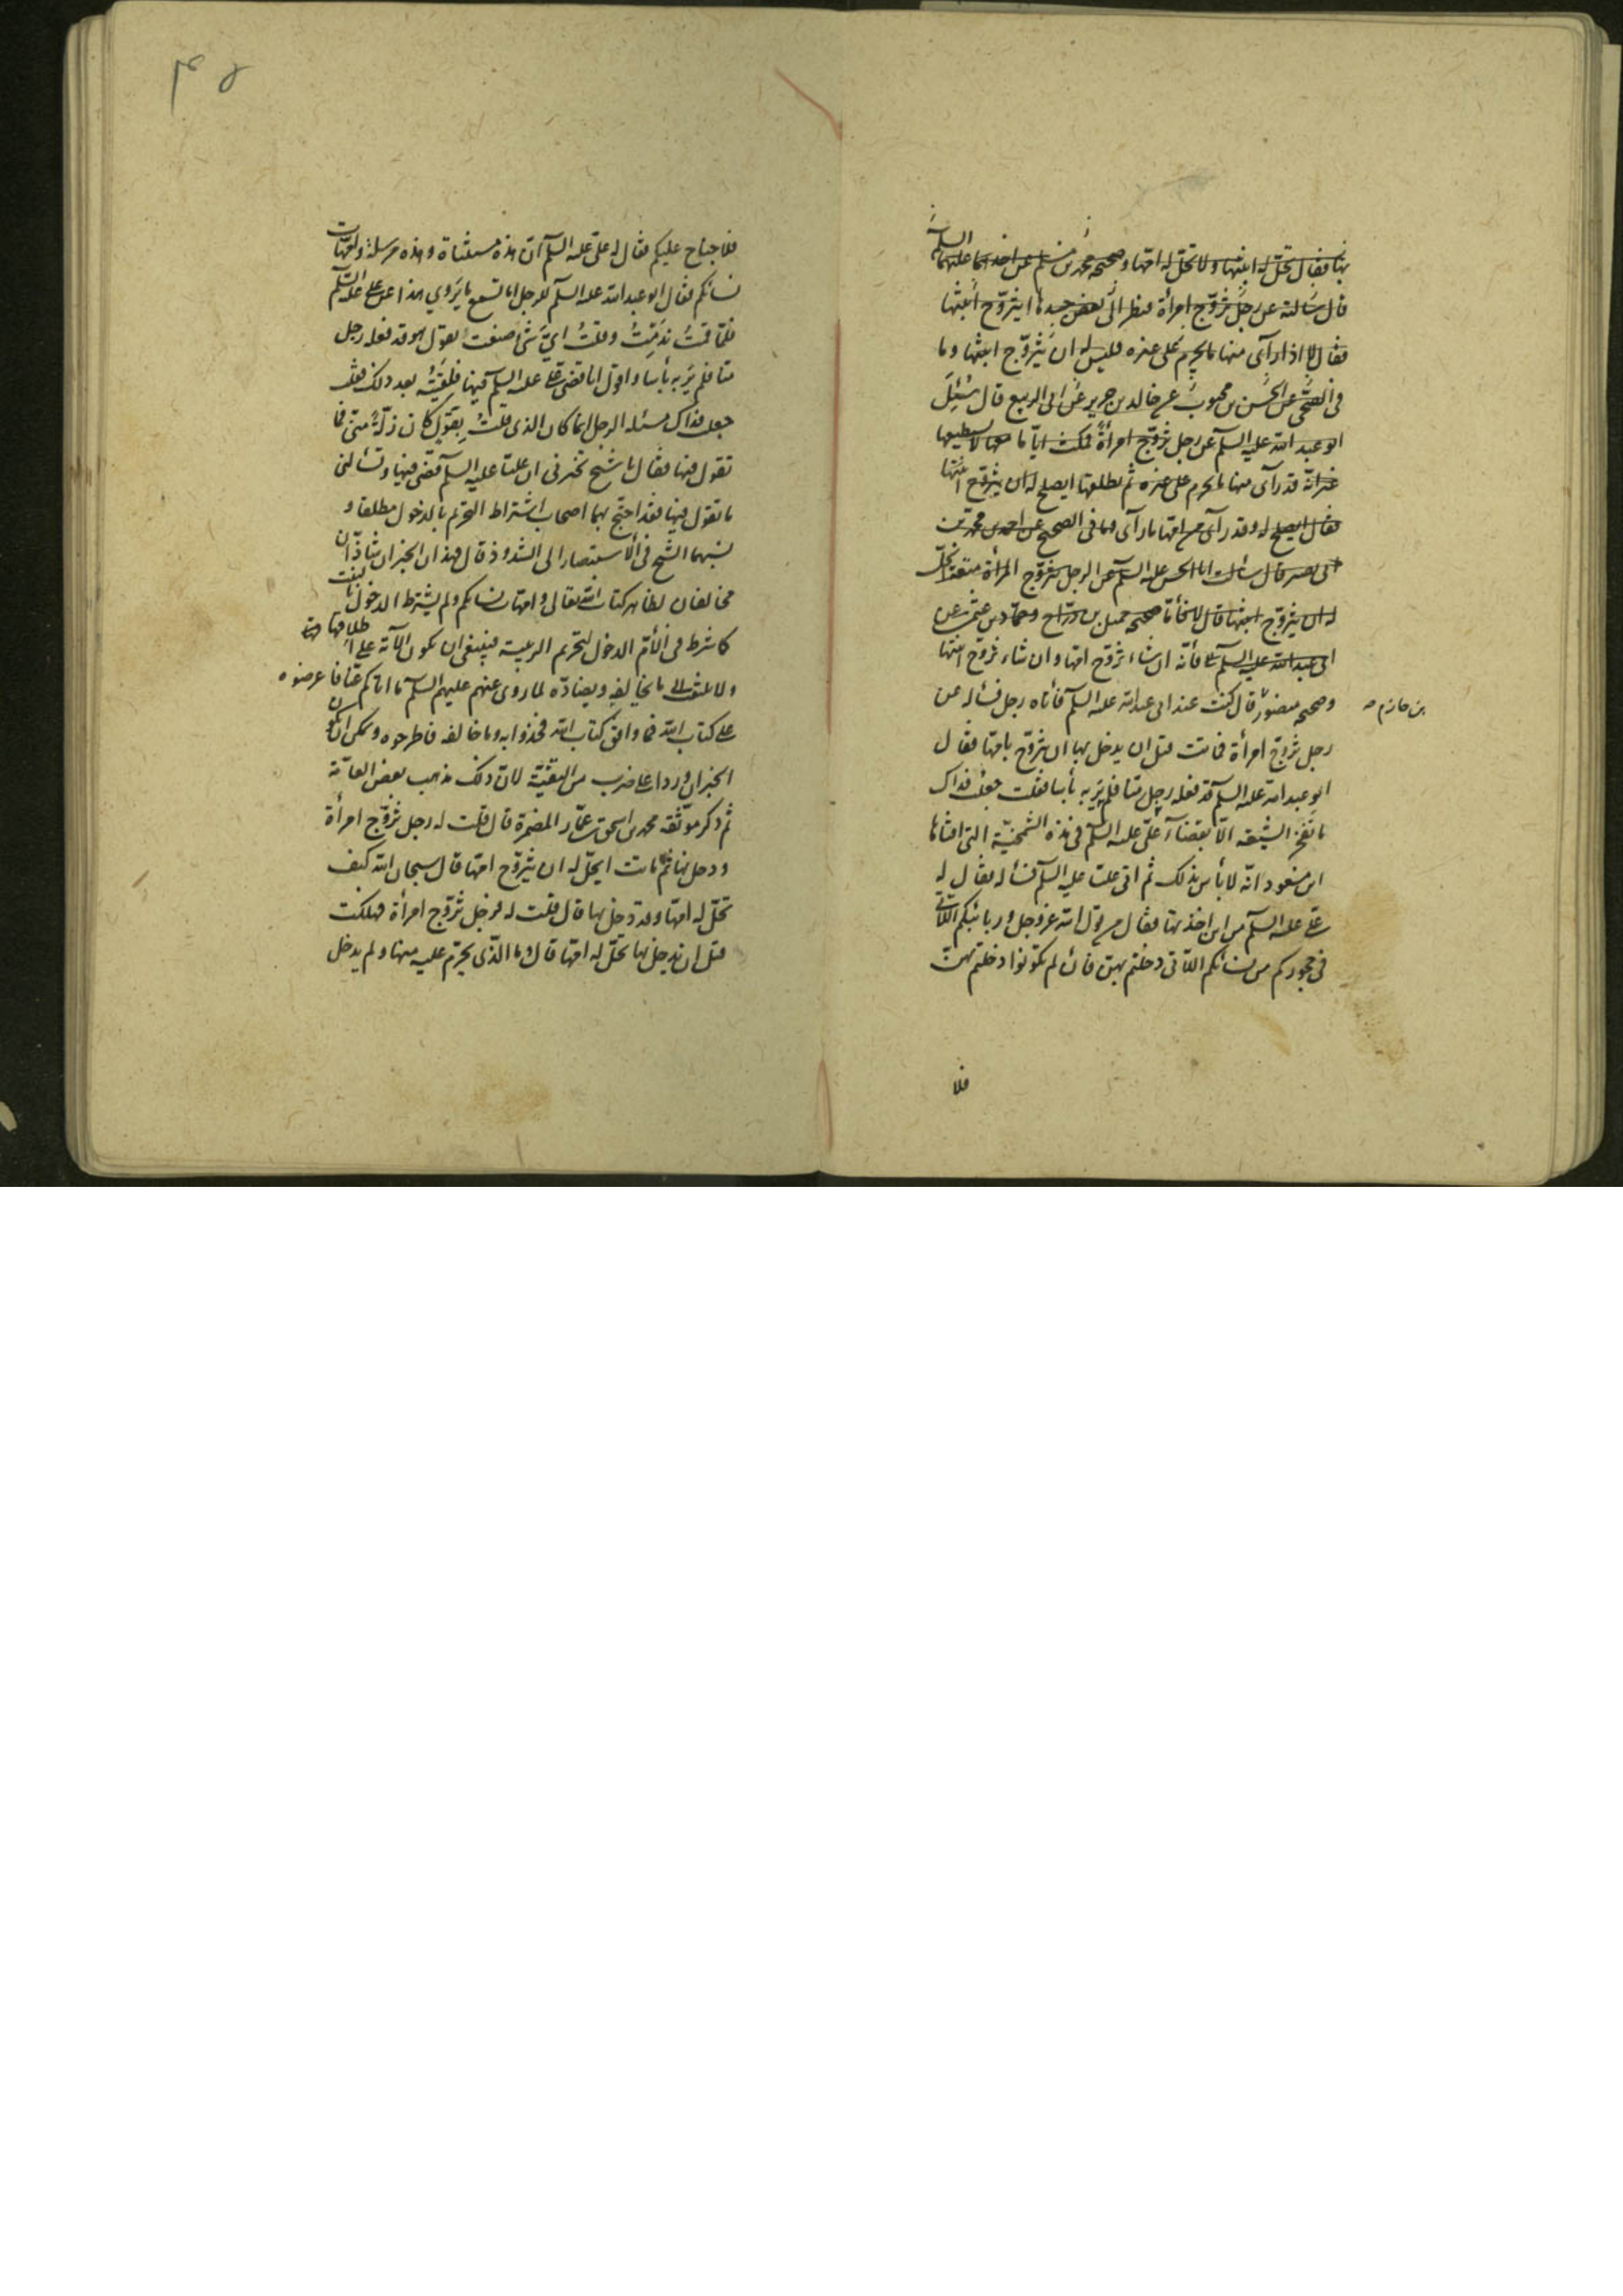 بها فقال تحلّ له ابنتها ولا تحلّ له امّها وصحيحة محمد بن مسلم عن احدهما عليهما السلم
قال سالته عن رجل تزوّج امرأة فنظر الى بعض جسدها ايتزوّج ابنتها
فقال لا اذا رآى منها ما يحرم على غيره فليس له ان يتزوّج ابنتها وما
فى الصحى عن الحسن بن محبوب عن خالد بن جرير عن ابى الربيع قال سُئِلَ
ابو عبد الله عليه السلم عن رجل تزوّج امرأةً فمكث ايّاما معها لا يستطيعها
غير انّه قد رآى منها ما يحرم على غيره ثم يطلقها ايصلح له ان يتزوّج ابنتها
فقال ايصلح له وقد رآى من امّها ما رآى وما فى الصحيح عن احمد بن محمّد بن
ابى نصر قال سألت ابا الحسن عليه السلم عن الرجل يتزوّج المرأة متعة اتحلّ
له ان يتزوّج ابنتها قال لا فأمّا صحيحة جميل بن درّاج وحمّاد بن عثمن عن
ابى عبد الله عليه السلم فأنّه ان شاء تزوّج امّها وان شاء تزوّج ابنتها
وصحيحة منصور قال كنت عند ابى عبد الله عليه السلم فأتاه رجل فسأله عن
بن حازم صح
رجل تزوّج امرأة فماتت قبل ان يدخل بها ان يتزوّج بامّها فقال
ابو عبد الله عليه السلم قد فعله رجل منّا فلم يَرَ به بأسا فقلت جعلت فداك
ما تفخر الشيعة الّا بقضاء علىّ عليه السلم فى هذه الشمخيّة التى افتاها
ابن مسعود انّه لا بأس بذلك ثم اتى عليّا عليه السلم فسأله فقال له
علىّ عليه السلم من اين اخذتها فقال من قول الله عزّ وجل وربائبكم اللّاتى
فى حجوركم من نسائكم اللّاتى دخلتم بهنّ فان لم تكونوا دخلتم بهنّ
فلا
۴۵
فلا جناح عليكم فقال له علىّ عليه السلم انّ هذه مستثناة وهذه مرسلة وامّهات
نسائكم فقال ابو عبد الله عليه السلم للرجل اما تسمع ما يَروي هذا عن علىّ عليه السلم
فلمّا قمتُ نَدِمْتُ وقلتُ ايّ شئ صنعت يقول هو قد فعله رجل
منّا فلم يَرَ به بأسا واقول انا قضى علىّ عليه السلم فيها فلَقِيتُه بعد ذلك فقلت
جعلت فداك مسئلة الرجل انّما كان الذى قلتُ يقول كان زلّةً منّى فما
تقول فيها فقال يا شيخ تخبرنى ان عليّا عليه السلم قضى فيها وتسألنى
ما تقول فيها فقد احتج بهما اصحاب اشتراط التحريم بالدخول مطلقا و
نسبهما الشيخ فى الاستبصار الى الشذوذ قال فهذان الخبران شاذّان
مخالفان لظاهر كتاب الله تعالى وامّهات نسائكم ولم يشترط الدخول بالبنت
كما شرط فى الأمّ الدخول لتحريم الربيبة فينبغى ان تكون الآية على اطلاقها
ولا يلتفت الى ما يخالفه ويضادّه لما روى عنهم عليهم السلم ما اتاكم عنّا فاعرضوه
على كتاب الله فما وافق كتاب الله فخذوا به وما خالفه فاطرحوه ويمكن ان يكون
الخبران وردا على ضرب من التقيّة لانّ ذلك مذهب بعض العامّة
ثم ذكر موثّقة محمد بن اسحق عمّار المضمرة قال قلت له رجل تزوّج امرأة
ودخل بها ثم ماتت ايحلّ له ان يتزوّج امّها قال سبحان الله كيف
تحلّ له امّها وقد دخل بها قال قلت له فرجل تزوّج امرأة فهلكت
قبل ان يدخل بها تحلّ له امّها قال وما الذّى يحرّم عليه منها ولم يدخل